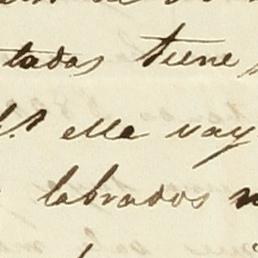 tadas tiene
ella vay
labrados